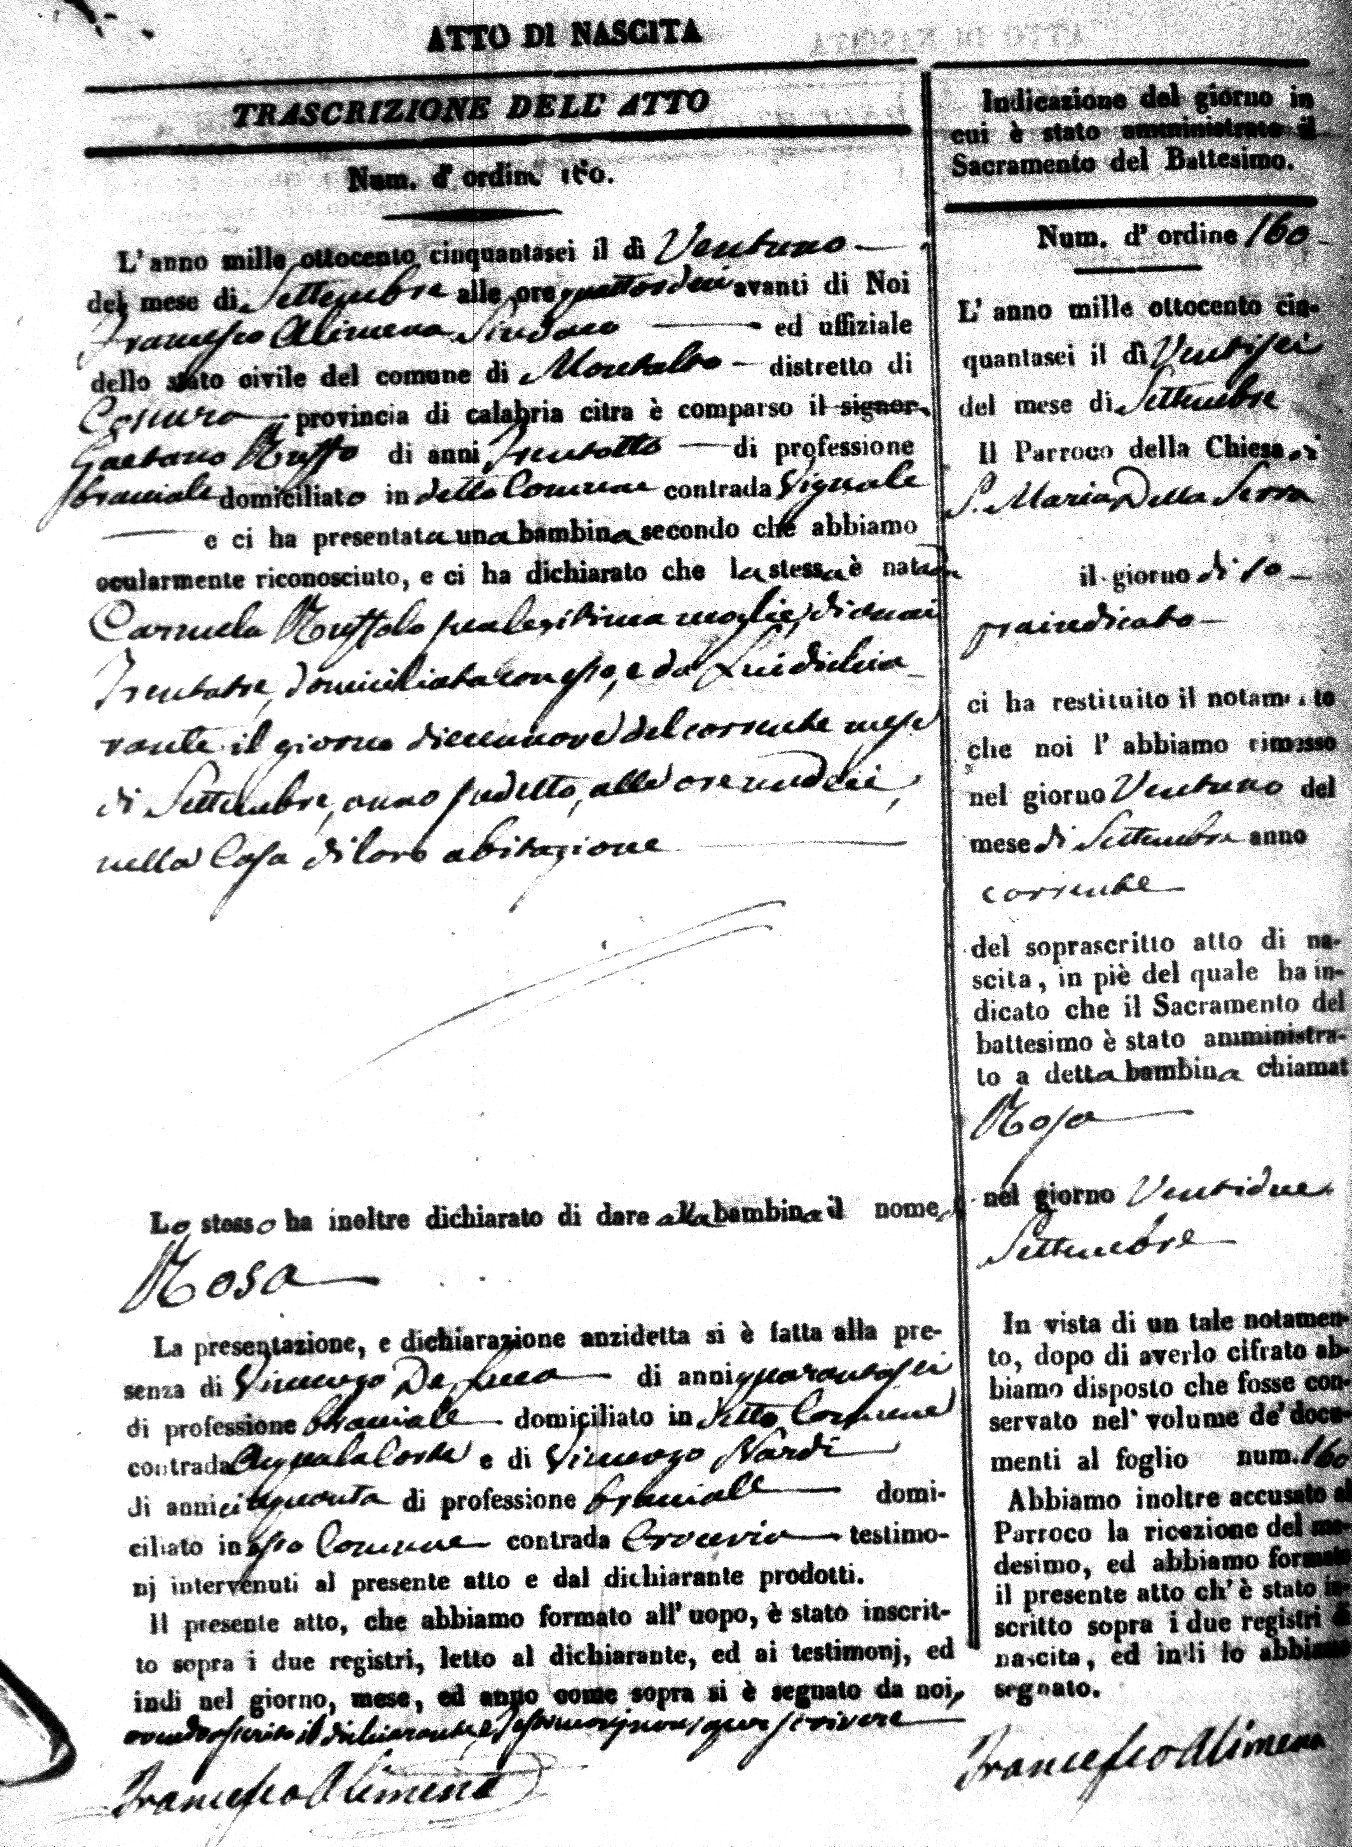 ATTO DI NASCITA
TRASCRIZIONE DELL' ATTO
Num. d' ordine 160.
L' anno mille ottocento cinquantasei il dì Ventuno
del mese di Settembre alle ore quattordici avanti di Noi
Francesco Alimena Sindaco ed uffiziale
dello stato civile del comune di Montalto distretto di
Cosenza provincia di calabria citra è comparso il signor
Gaetano Ruffo di anni Trentotto di professione
Bracciale domiciliato in detto Comune contrada Vignale
e ci ha presentata una bambina secondo che abbiamo
ocularmente riconosciuto, e ci ha dichiarato che la stessa è nata da
Carmela Ruffolo sua legittima moglie, di anni
Trentatre, domiciliata con esso, e da Lui dichia
rante il giorno diecinnove del corrente mese
di Settembre, anno sudetto, alle ore undici,
nella Casa di loro abitazione
Lo stesso ha inoltre dichiarato di dare alla bambina il nome di
Rosa
La presentazione, e dichiarazione anzidetta si è fatta alla pre-
senza di Vincenzo De Luca di anni quarantasei
di professione bracciale domiciliato in detto Comune
contrada e di Vincenzo Nardi
di anni cinquanta di professione bracciale domi-
ciliato in esso Comune contrada testimo-
nj intervenuti al presente atto e dal dichiarante prodotti.
Il presente atto, che abbiamo formato all' uopo, è stato inscrit-
to sopra i due registri, letto al dichiarante, ed ai testimonj, ed
indi nel giorno, mese, ed anno come sopra si è segnato da noi,
avendo asserito il dichiarante, e Testimonj non saper scrivere
Francesco Alimena
Indicazione del giorno in
cui è stato amministrato il
Sacramento del Battesimo.
Num. d' ordine 160
L' anno mille ottocento cin-
quantasei il dì Ventisei
del mese di Settembre
Il Parroco della Chiesa di
S. Maria Della Serra
il giorno di so
praindicato
ci ha restituito il notamento
che noi l' abbiamo rimesso
nel giorno Ventuno del
mese di Settembre anno
corrente
del soprascritto atto di na-
scita, in piè del quale ha in-
dicato che il Sacramento del
battesimo è stato amministra-
to a detta bambina chiamat
Rosa
nel giorno Ventidue
Settembre
In vista di un tale notamen-
to, dopo di averlo cifrato ab-
biamo disposto che fosse con-
servato nel volume de' docu-
menti al foglio num. 160
Abbiamo inoltre accusato al
Parroco la ricezione del me-
desimo, ed abbiamo formato
il presente atto ch' è stato in-
scritto sopra i due registri di
nascita, ed indi lo abbiamo
segnato.
Francesco Alimena